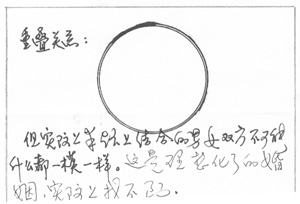 重叠关系：
但实际上事实上结合的男女双方不可能
什么都一模一样。这是理想化了的婚
姻，实际上找不到。